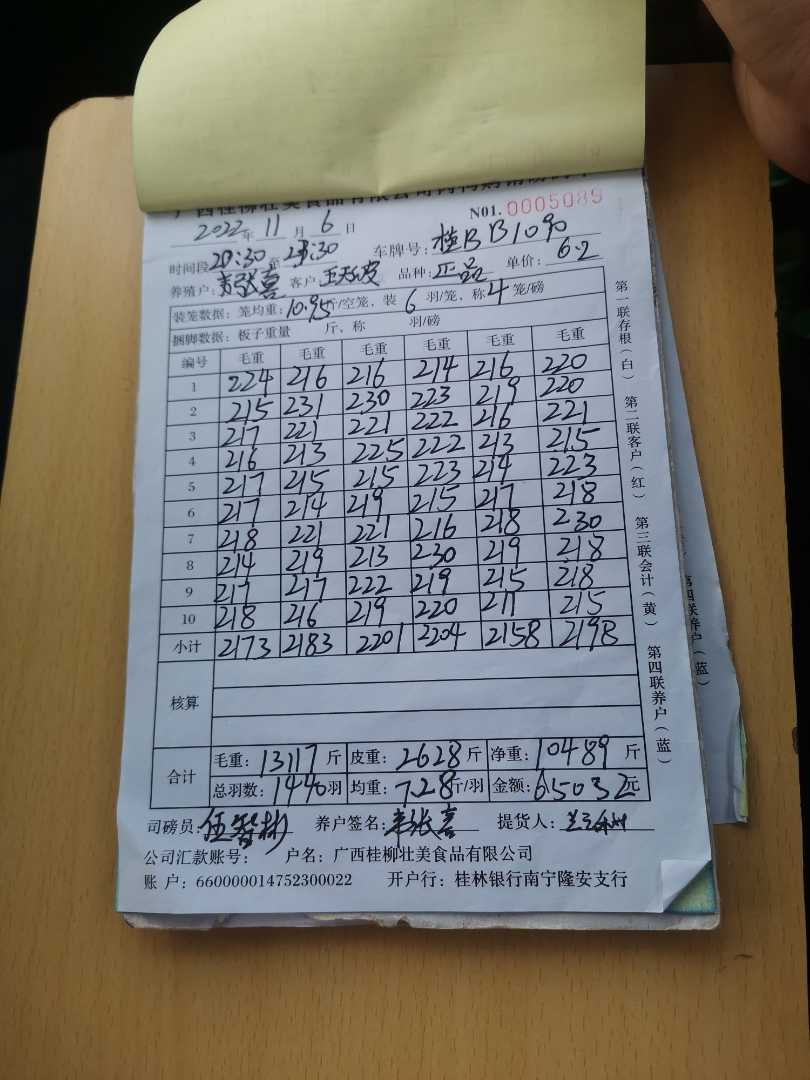 广西桂柳壮美食品有限公司
N01. 0005089
2022年 11 月 6 日
时间段 20:30 至 23:30 车牌号: 桂BB1090
养殖户: 客户: 品种: 正品 单价: 6.2
装笼数据: 笼均重: 10.95斤/空笼、装 6 羽/笼、称 4 笼/磅
捆脚数据: 板子重量 斤、称 羽/磅
编号 毛重 毛重 毛重 毛重 毛重 毛重
1 224 216 216 214 216 220
2 215 231 230 223 219 220
3 217 221 221 222 216 221
4 216 213 225 222 213 215
5 217 215 215 223 214 223
6 217 214 219 215 217 218
7 218 221 221 216 218 230
8 214 219 213 230 219 218
9 217 217 222 219 215 218
10 218 216 219 220 211 215
小计 2173 2183 2201 2204 2158 2198
核算
合计 毛重: 13117 斤 皮重: 2628 斤 净重: 10489 斤
总羽数: 1440羽 均重: 7.28斤/羽 金额: 65032元
司磅员: 伍智彬 养户签名: 提货人:
公司汇款账号: 户名: 广西桂柳壮美食品有限公司
账 户: 660000014752300022 开户行: 桂林银行南宁隆安支行
第一联存根(白) 第二联客户(红) 第三联会计(黄) 第四联养户(蓝)
第四联养户(蓝)